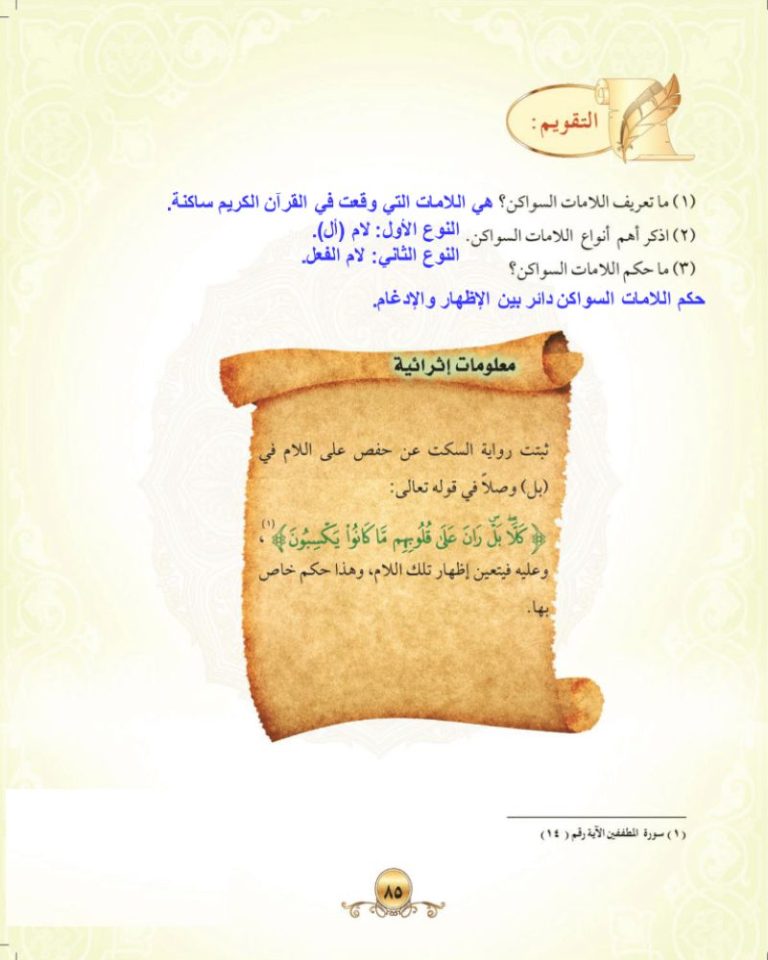 التقويم:
(١) ما تعريف اللامات السواكن؟ هي اللامات التي وقعت في القرآن الكريم ساكنة.
(٢) اذكر أهم أنواع اللامات السواكن. النوع الأول: لام (أل).
النوع الثاني: لام الفعل.
(٣) ما حكم اللامات السواكن؟
حكم اللامات السواكن دائر بين الإظهار والإدغام.
معلومات إثرائية
ثبتت رواية السكت عن حفص على اللام في
(بل) وصلاً في قوله تعالى:
﴿ كَلَّاۖ بَلْۜ رَانَ عَلَىٰ قُلُوبِهِم مَّا كَانُوا۟ يَكْسِبُونَ ﴾(١)،
وعليه فيتعين إظهار تلك اللام، وهذا حكم خاص
بها.
(١) سورة المطففين الآية رقم (١٤)
٨٥